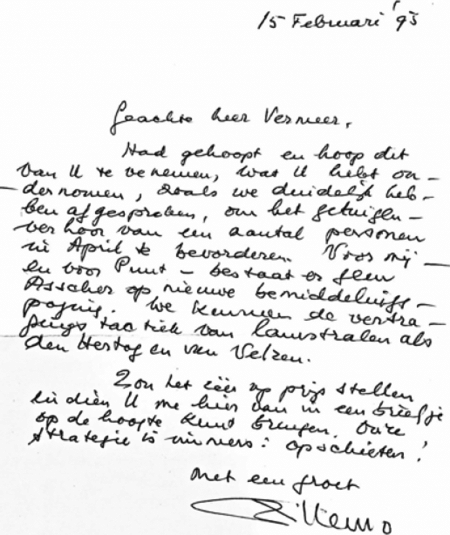 15 Februari '93
Geachte heer Vermeer,
Had gehoopt en hoop dit
van U te vernemen, wat U hebt on-
dernomen, zoals we duidelijk heb-
ben afgesproken, om het getuigen-
verhoor van een aantal personen
in April te bevorderen. Voor mij -
en voor Punt - bestaat er geen
Asscher op nieuwe bemiddelings-
poging. We kennen de vertra-
gings tactiek van lanistralen als
den Hertog en van Velzen.
Zou het zéér op prijs stellen
indien U me hier van in een briefje
op de hoogte kunt brengen. Onze
strategie is immers: opschieten!
Met een groet